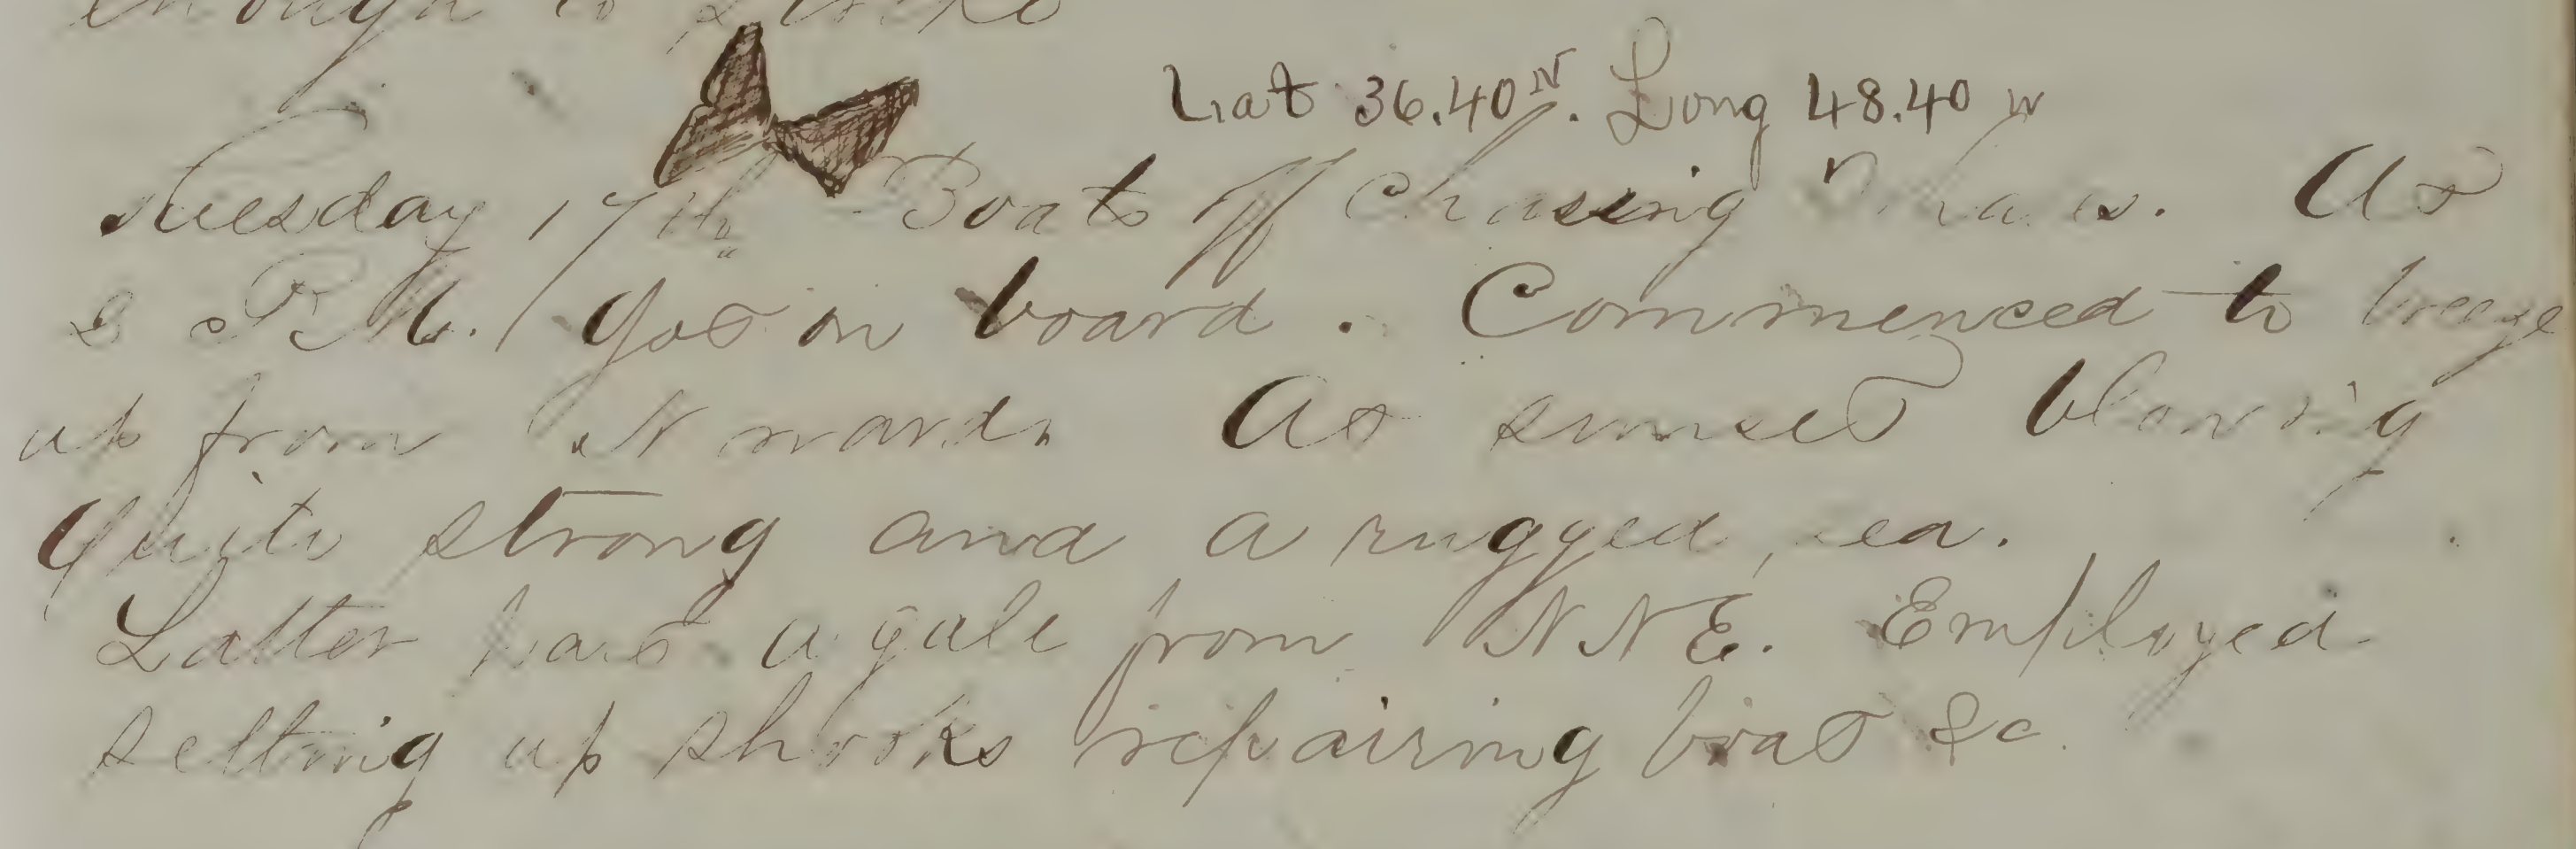 enough to strike
Lat 36.40 N. Long 48.40 W
Tuesday 17th Boats off chasing whales. At
P.M. got on board. Commenced to breeze
up from N ward. At sunset blowing
quite strong and a rugged sea.
Latter part a gale from NNE. Employed
setting up shooks repairing boat &c